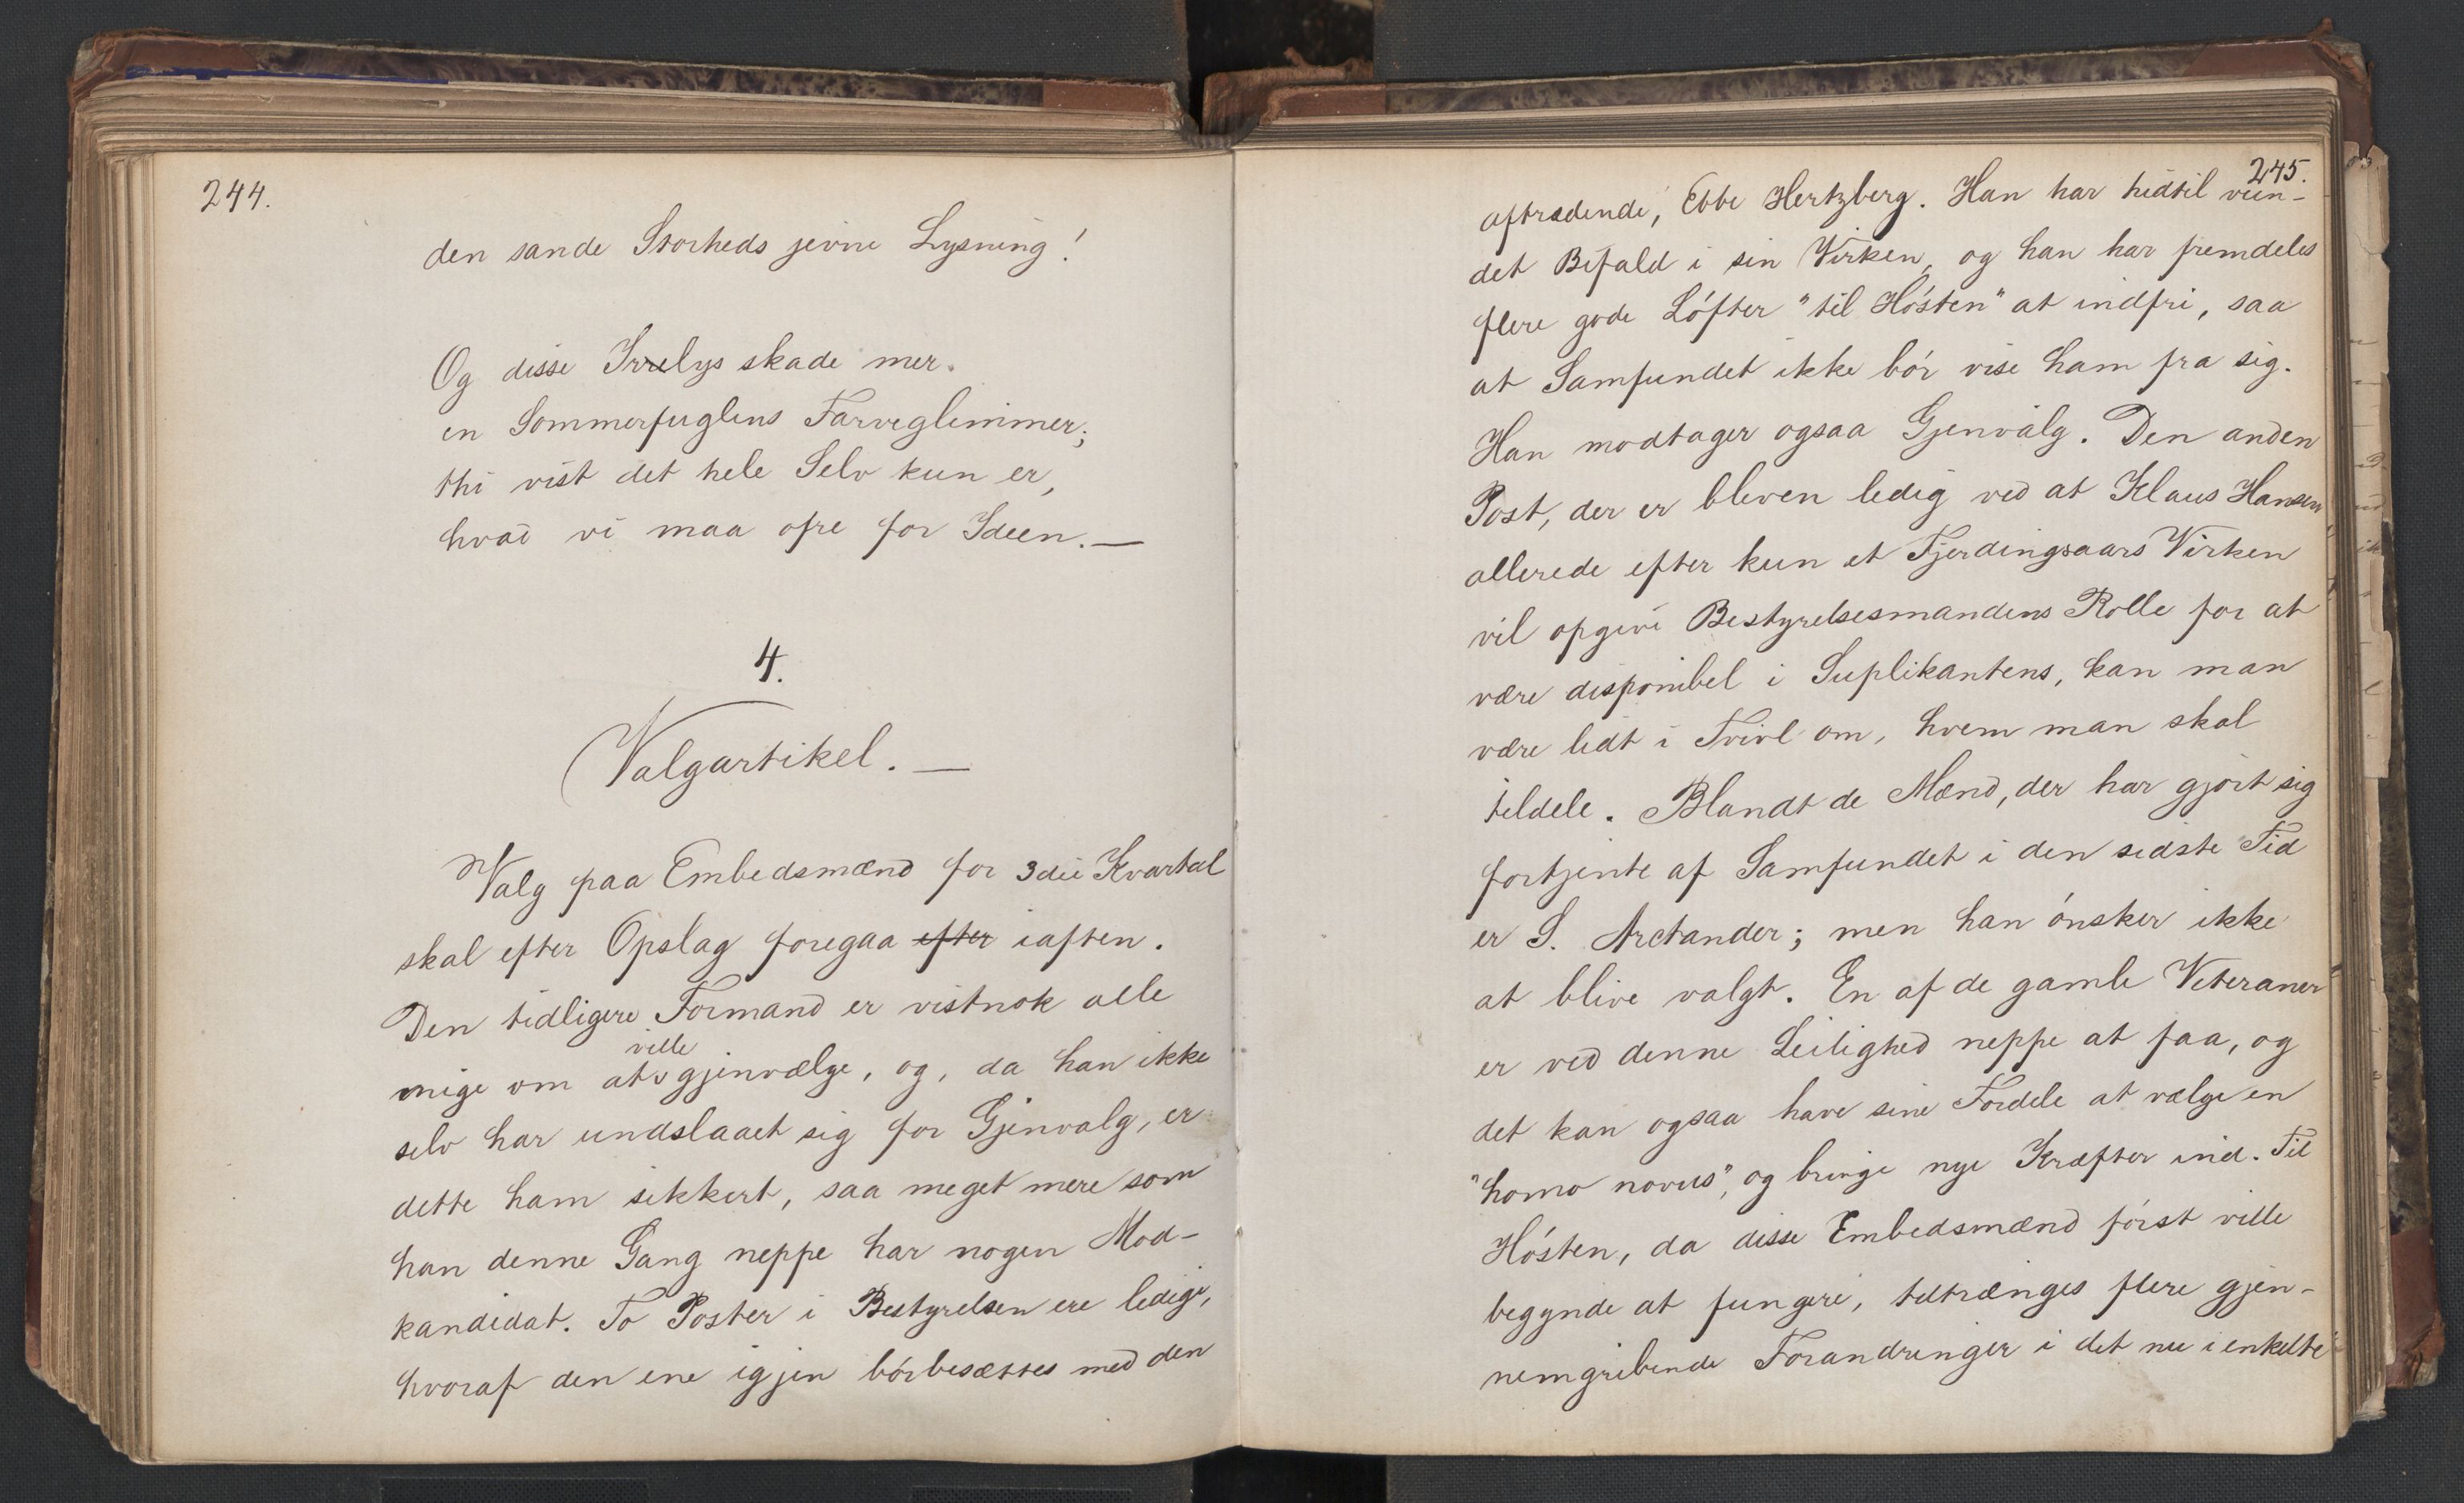 244.
den sande Storheds jevne Lysning!
Og disse Irrelys skade mer.
en Sommerfuglens Farveglimmer;
thi vist det hele Selv kun er,
hvad vi maa ofre for Ideen. —
4.
Valgartikel. —
Valg paa Embedsmænd for 3die Kvartal
skal efter Opslag foregaa efter iaften.
Den tidligere Formand er vistnok alle
ville
enige om at gjenvælge, og, da han ikke
selv har undslaaet sig for Gjenvalg, er
dette ham sikkert, saa meget mere som
han denne Gang neppe har nogen Mod-
kandidat. To Poster i Bestyrelsen ere ledige,
hvoraf den ene igjen bör besættes med den
245.
aftrædende, Ebbe Hertzberg. Han har hidtil vun-
det Bifald i sin Virken, og han har fremdeles
flere gode Löfter "til Hösten" at indfri, saa
at Samfundet ikke bör vise ham fra sig.
Han modtager ogsaa Gjenvalg. Den anden
Post, der er bleven ledig ved at Klaus Hansen
allerede efter kun et Fjerdingsaars Virken
vil opgive Bestyrelsesmandens Rolle for at
være disponibel i Suplikantens, kan man
være lidt i Tvivl om, hvem man skal
tildele. Blandt de Mænd, der har gjört sig
fortjente af Samfundet i den sidste Tid
er S. Arctander; men han önsker ikke
at blive valgt. En af de gamle Veteraner
er ved denne Leilighed neppe at faa, og
det kan ogsaa have sine Fordele at vælge en
"homo novus", og bringe nye Kræfter ind. Til
Hösten, da disse Embedsmænd först ville
begynde at fungere, tiltrænges flere gjen-
nemgribende Forandringer i det nu i enkelte